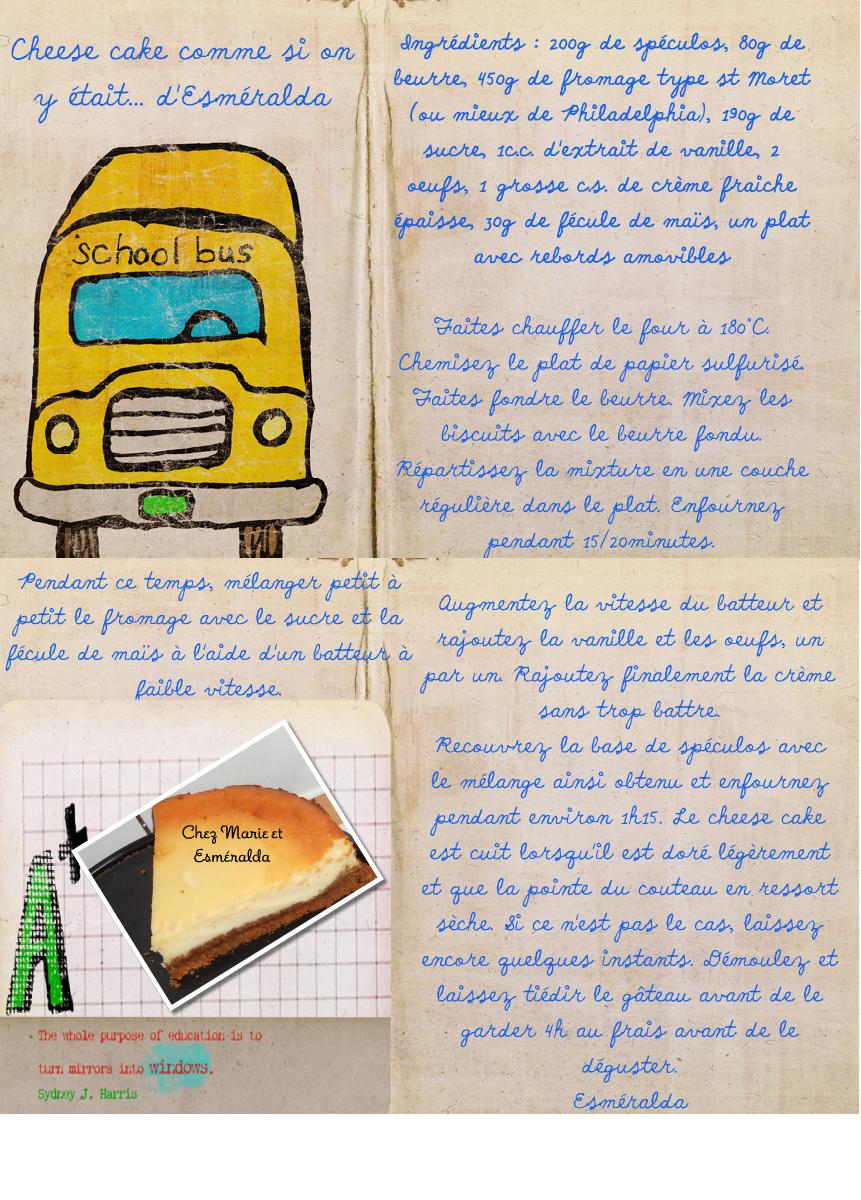 Cheese cake comme si on
y était... d'Esméralda
school bus
Ingrédients : 200g de spéculos, 80g de
beurre, 450g de fromage type st Moret
(ou mieux de Philadelphia), 190g de
sucre, 1c.c. d'extrait de vanille, 2
oeufs, 1 grosse c.s. de crème fraiche
épaisse, 30g de fécule de maïs, un plat
avec rebords amovibles
Faites chauffer le four à 180°C.
Chemisez le plat de papier sulfurisé.
Faites fondre le beurre. Mixez les
biscuits avec le beurre fondu.
Répartissez la mixture en une couche
régulière dans le plat. Enfournez
pendant 15/20minutes.
Pendant ce temps, mélanger petit à
petit le fromage avec le sucre et la
fécule de maïs à l'aide d'un batteur à
faible vitesse.
A+
Chez Marie et
Esméralda
The whole purpose of education is to
turn mirrors into windows.
Sydney J. Harris
Augmentez la vitesse du batteur et
rajoutez la vanille et les oeufs, un
par un. Rajoutez finalement la crème
sans trop battre.
Recouvrez la base de spéculos avec
le mélange ainsi obtenu et enfournez
pendant environ 1h15. Le cheese cake
est cuit lorsqu'il est doré légèrement
et que la pointe du couteau en ressort
sèche. Si ce n'est pas le cas, laissez
encore quelques instants. Démoulez et
laissez tiédir le gâteau avant de le
garder 4h au frais avant de le
déguster.
Esméralda